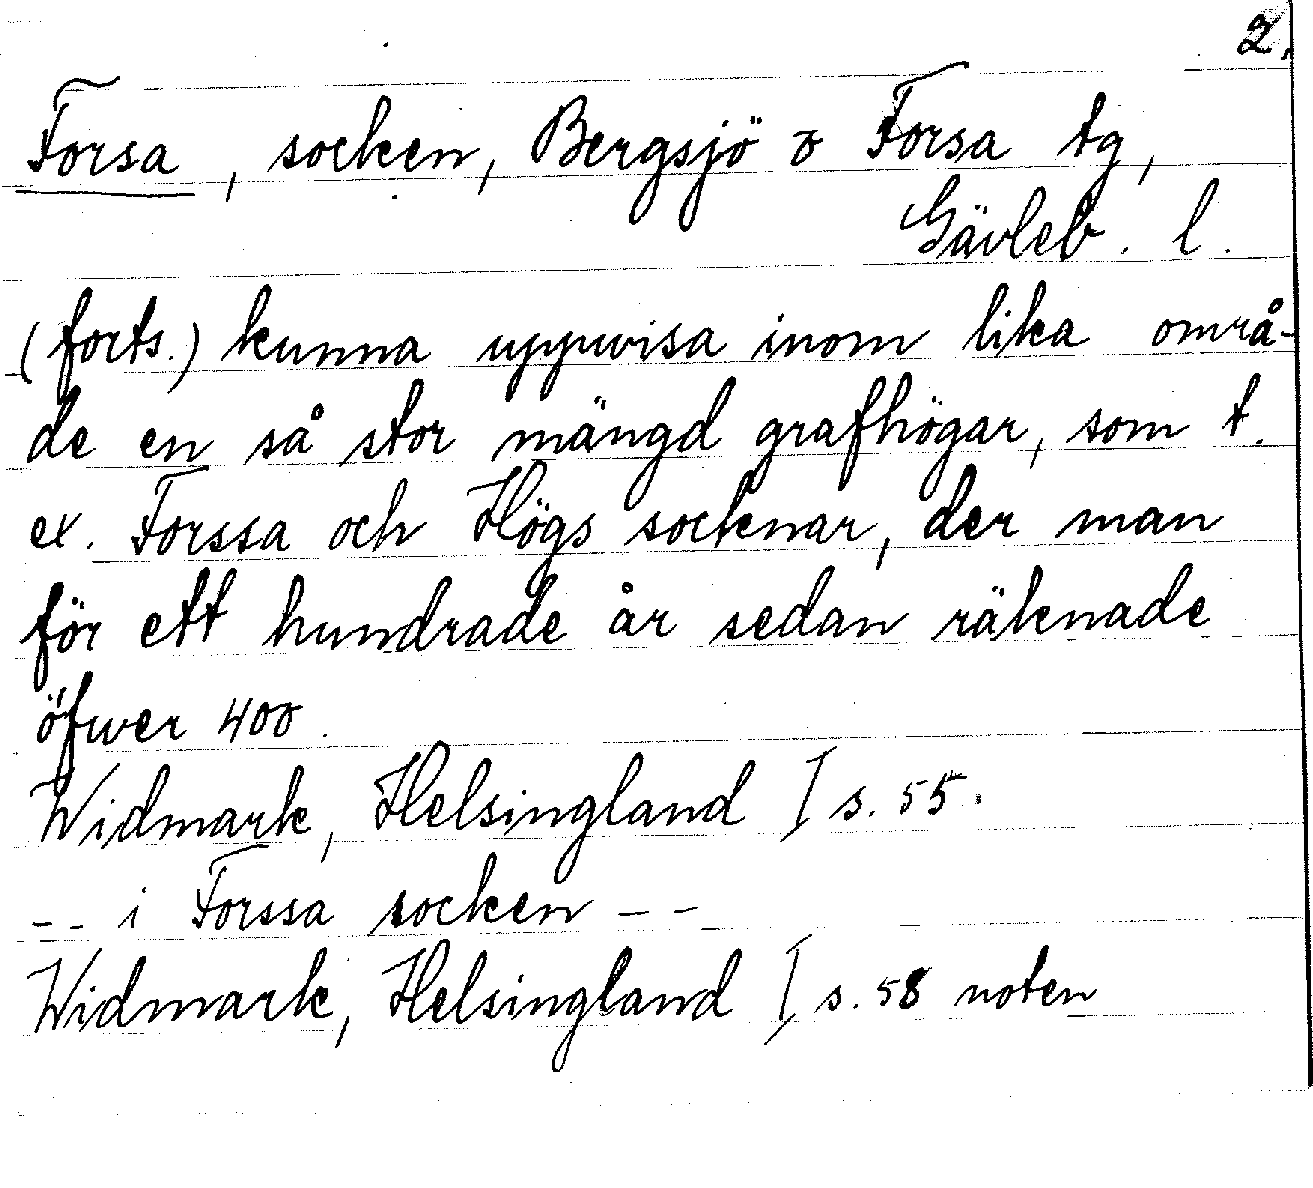 2.
Forsa, socken, Bergsjö o Forsa tg,
Gävleb. l.
(forts.) kunna uppwisa inom lika områ-
de en så stor mängd grafhögar, som t.
ex. Forssa och Högs socknar, der man
för ett hundrade år sedan räknade
öfwer 400.
Widmark, Helsingland I s. 55.
-- i Forssa socken --
Widmark, Helsingland I s. 58 noten